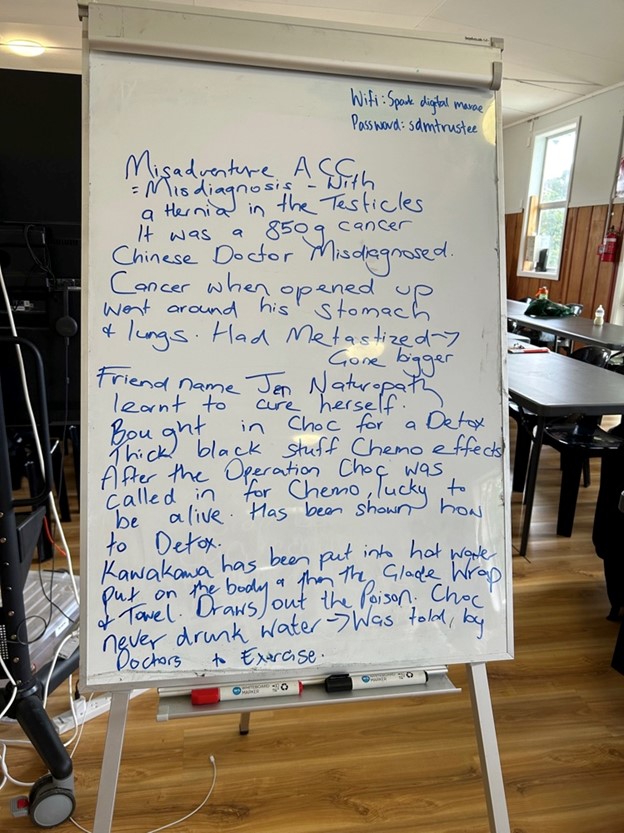 Wifi: Spark digital marae
Password: sdmtrustee
Misadventure ACC
= Misdiagnosis - With
a Hernia in the Testicles
It was a 850g cancer
Chinese Doctor Misdiagnosed.
Cancer when opened up
went around his stomach
& lungs. Had Metastized →
Gone bigger
Friend name Jen Naturopath
learnt to cure herself.
Bought in Choc for a Detox
Thick black stuff Chemo effects
After the Operation Choc was
called in for Chemo, lucky to
be alive. Has been shown how
to Detox.
Kawakawa has been put into hot water
put on the body & then the Glade Wrap
& Towel. Draws out the Poison. Choc
never drunk water → Was told by
Doctors to Exercise.